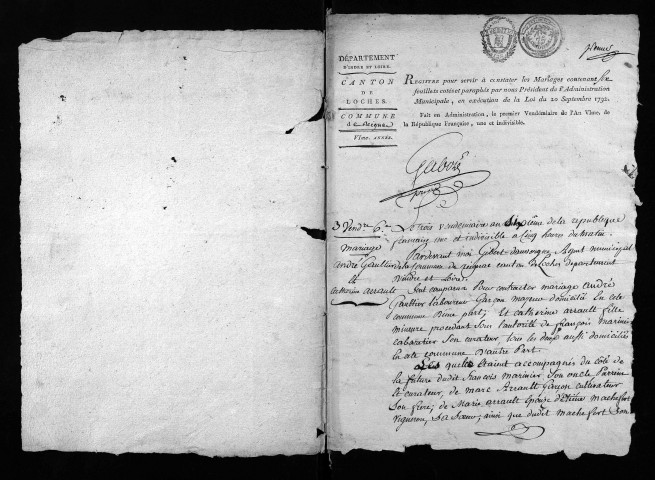 DÉPARTEMENT
D'INDRE ET LOIRE.
CANTON
DE
LOCHES.
COMMUNE
VIme. ANNÉE.
REGISTRE pour servir à constater les Mariages contenant six
feuillets cotés et paraphés par nous Président de l'Administration
Municipale, en exécution de la Loi du 20 Septembre 1792.
Fait en Administration, le premier Vendémiaire de l'An VIme. de
la République Française, une et indivisible.
3 Vend.re 6.e
mariage
andré Gaultier
&
catherine arrault
Le trois vendemiaire an Sixième de la republique
francaise une et indivisible a cinq heures du matin
Pardevant moi Gilbert Agent municipal
de la commune de canton de Loches departement
d'indre et Loire
Sont comparus Pour contracter mariage andré
Gaultier Laboureur Garçon majeur domicilié En cete
commune d'une part; Et catherine arrault fille
mineure procedant sous l'autorité de françois marinier
cabaretier Son curateur, tous les deux aussi domiciliés
en cete commune d'autre Part.
Les quels étaient accompagnés du coté de
la future dudit françois marinier, Son oncle
et curateur, de marc Arrault Garçon cultivateur
Son frere; de Marie arrault épouse d'étiene machefert
vigneron, Sa Sœur; ainsi que dudit machefert Son